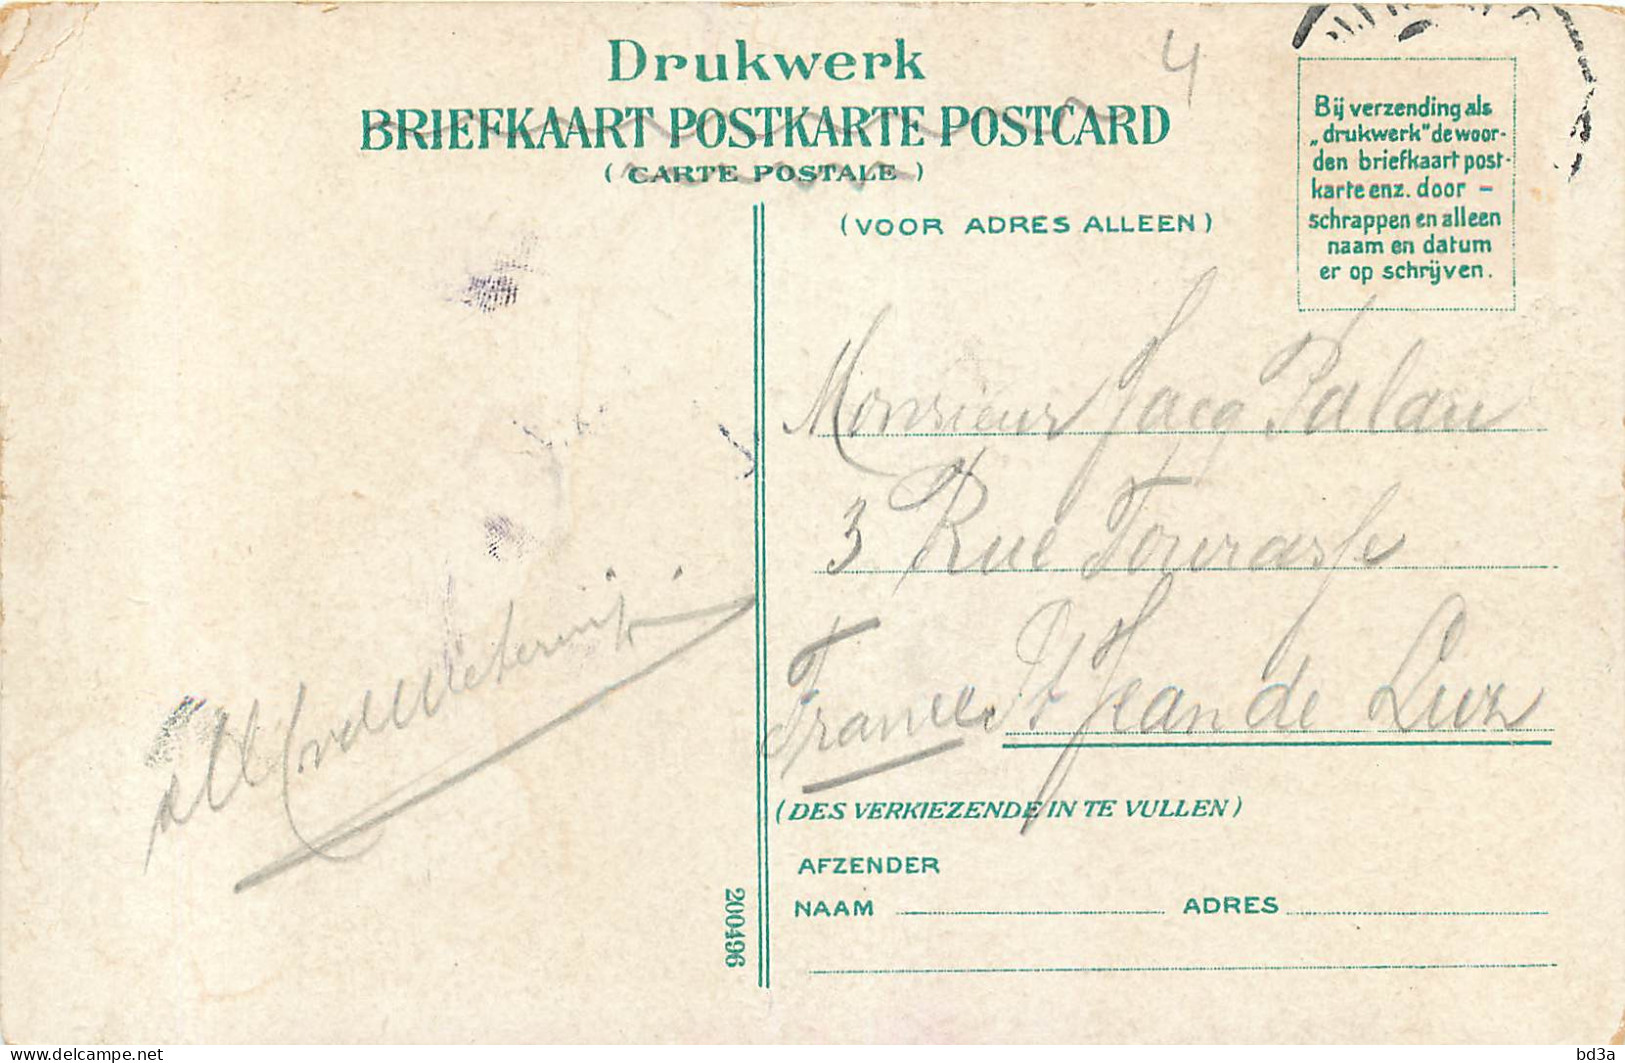 4
Drukwerk
BRIEFKAART POSTKARTE POSTCARD
( CARTE POSTALE )
(VOOR ADRES ALLEEN)
Bij verzending als
„drukwerk" de woor-
den briefkaart post-
karte enz. door -
schrappen en alleen
naam en datum
er op schrijven.
Monsieur Jacq Palau
3 Rue Tourasse
France. St Jean de Luz
(DES VERKIEZENDE IN TE VULLEN)
AFZENDER
NAAM ADRES
200496
www.delcampe.net
bd3a